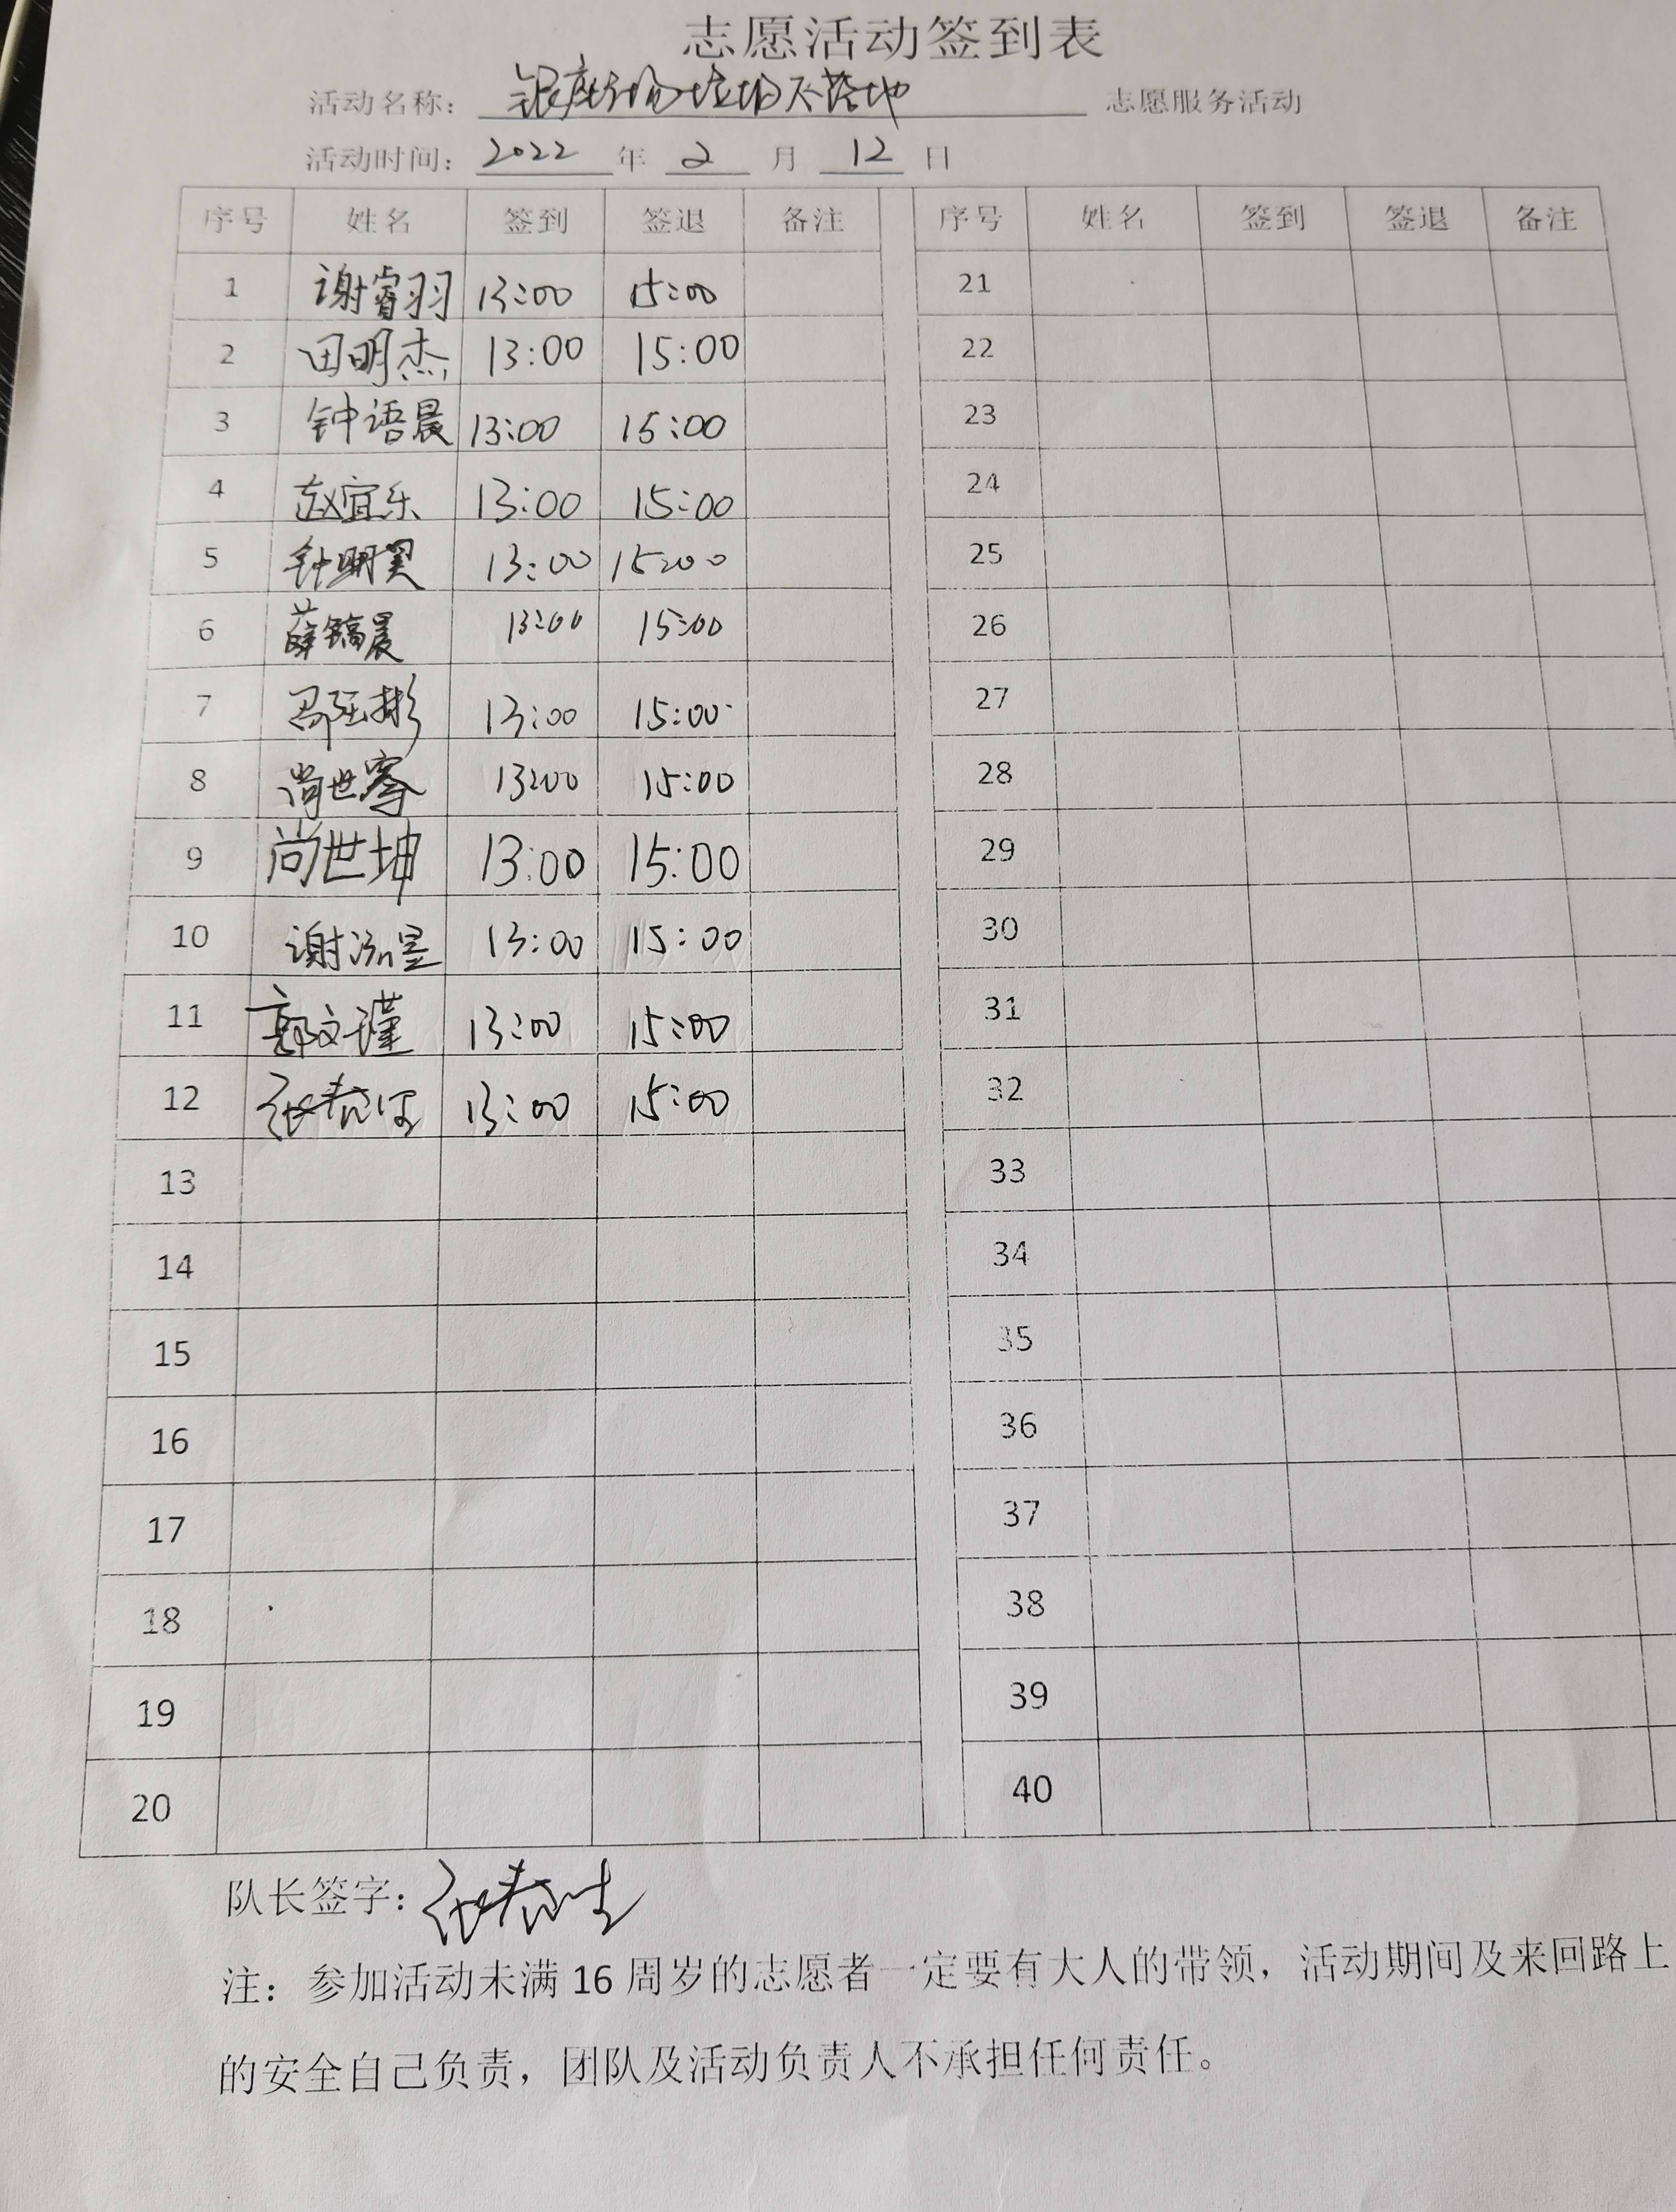 志愿活动签到表
活动名称： 银座 垃圾不落地 志愿服务活动
活动时间： 2022 年 2 月 12 日
序号 姓名 签到 签退 备注 序号 姓名 签到 签退 备注
1 谢睿羽 13:00 15:00 21
2 田明杰 13:00 15:00 22
3 钟语晨 13:00 15:00 23
4 赵宜乐 13:00 15:00 24
5 钟明昊 13:00 15:00 25
6 薛镐晨 13:00 15:00 26
7 13:00 15:00 27
8 尚世骞 13:00 15:00 28
9 尚世坤 13:00 15:00 29
10 谢泓昱 13:00 15:00 30
11 郭文瑾 13:00 15:00 31
12 13:00 15:00 32
13 33
14 34
15 35
16 36
17 37
18 38
19 39
20 40
队长签字：
注：参加活动未满 16 周岁的志愿者一定要有大人的带领，活动期间及来回路上
的安全自己负责，团队及活动负责人不承担任何责任。